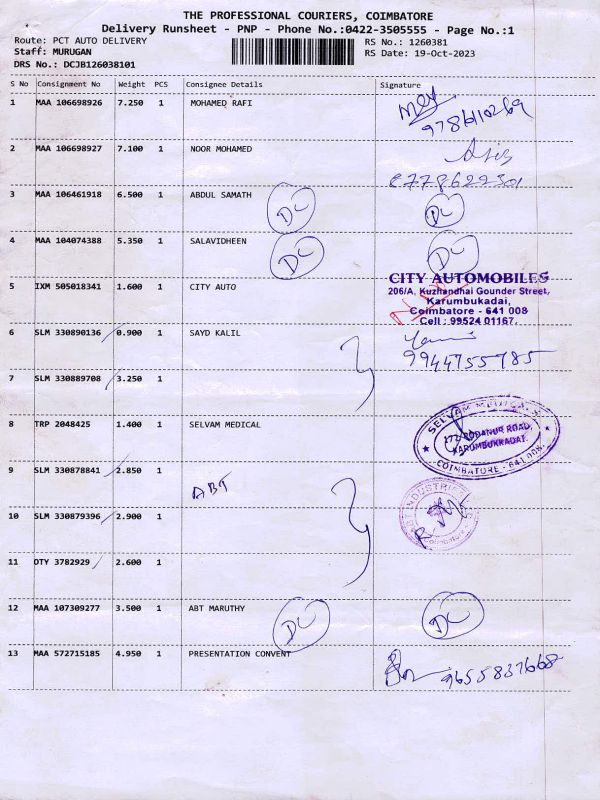 THE PROFESSIONAL COURIERS, COIMBATORE
Delivery Runsheet - PNP - Phone No.:0422-3505555 - Page No.:1
Route: PCT AUTO DELIVERY RS No.: 1260381
Staff: MURUGAN RS Date: 19-Oct-2023
DRS No.: DCJB126038101
S No Consignment No Weight PCS Consignee Details Signature
1 MAA 106698926 7.250 1 MOHAMED RAFI
2 MAA 106698927 7.100 1 NOOR MOHAMED
8778622301
3 MAA 106461918 6.500 1 ABDUL SAMATH DC DC
4 MAA 104074388 5.350 1 SALAVIDHEEN DC DC
5 IXM 505018341 1.600 1 CITY AUTO
CITY AUTOMOBILES
206/A, Kuzhandhai Gounder Street,
Karumbukadai,
Coimbatore - 641 008
Cell : 99524 01167.
6 SLM 330890136 0.900 1 SAYD KALIL
9944755785
7 SLM 330889708 3.250 1
8 TRP 2048425 1.400 1 SELVAM MEDICAL
SELVAM MEDICALS
172, PODANUR ROAD,
KARUMBUKKADAI.
COIMBATORE - 641 008
9 SLM 330878841 2.850 1 ABT
10 SLM 330879396 2.900 1
ABT INDUSTRIES
11 OTY 3782929 2.600 1
12 MAA 107309277 3.500 1 ABT MARUTHY DC DC
13 MAA 572715185 4.950 1 PRESENTATION CONVENT
9655837668